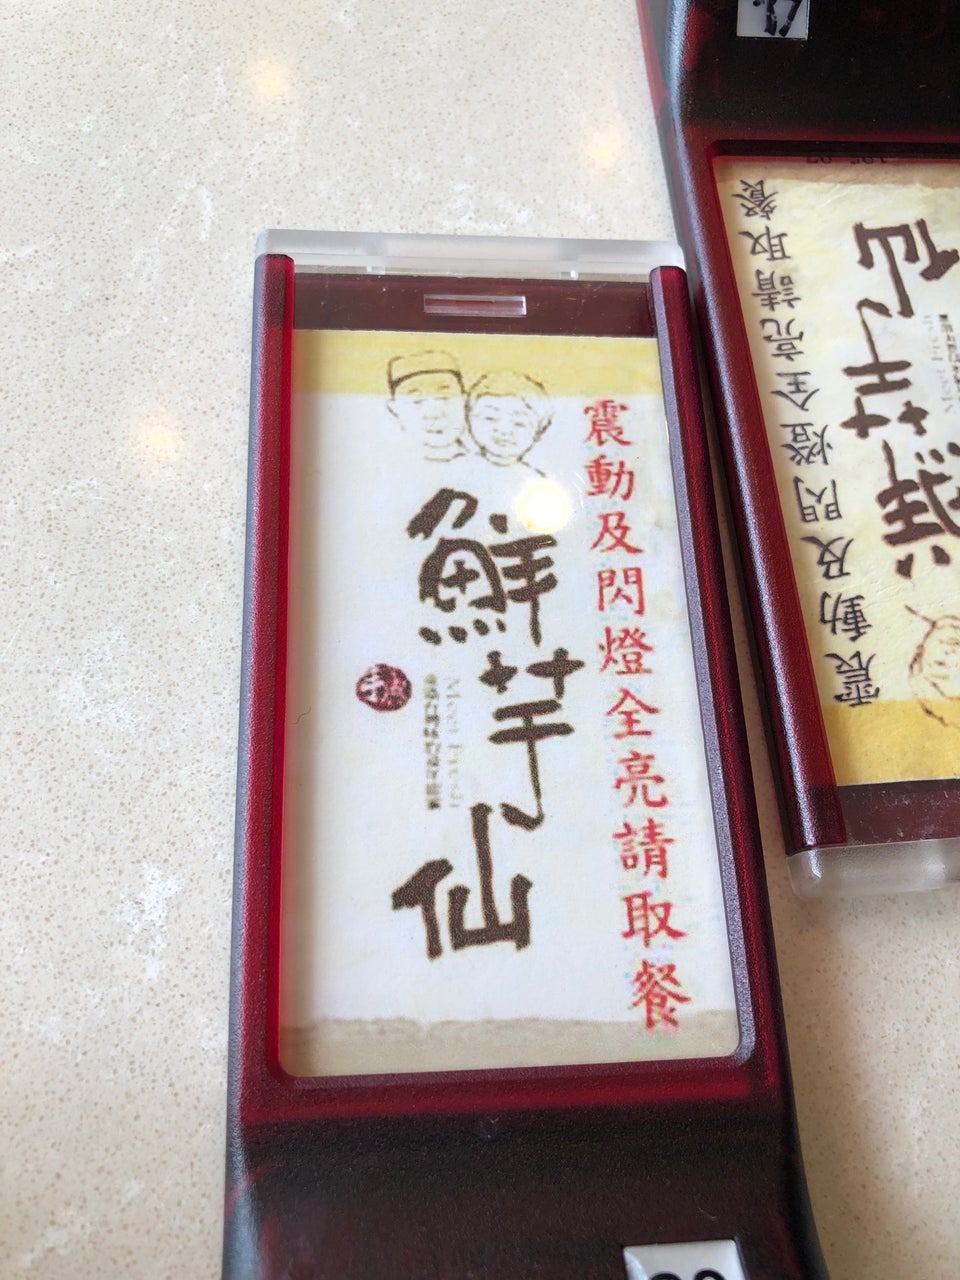 震動及閃燈全亮請取餐
鮮芋仙
Meet Fresh
震動及閃燈全亮請取餐
鮮芋仙